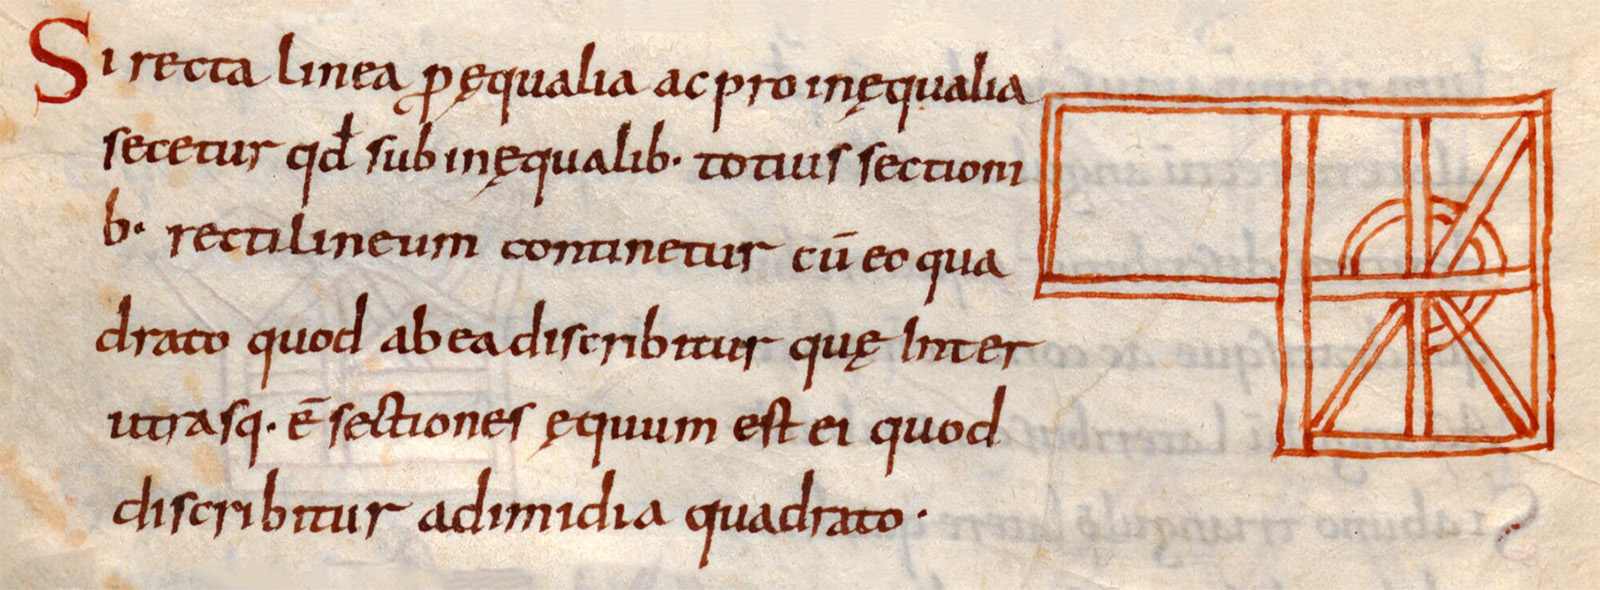 Si recta linea ꝑ ęqualia ac pro inęqualia
secetur qđ sub inęqualib· totius sectioni
b· rectilineum continetur cū eo qua
drato quod ab ea discribitur quę Inter
utrasq· ē sectiones ęquum est ei quod
discribitur a dimidia quadrato·